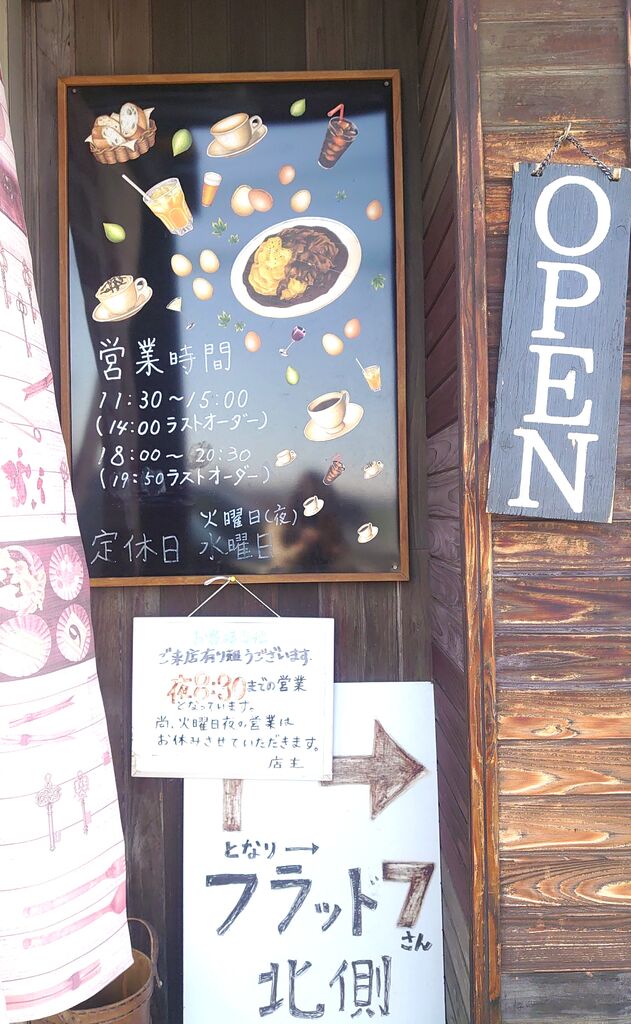 OPEN
営業時間
11:30～15:00
(14:00ラストオーダー)
18:00～20:30
(19:50ラストオーダー)
火曜日(夜)
定休日 水曜日
ご来店有り難うございます。
夜8:30までの営業
となっています。
尚、火曜日夜の営業は
お休みさせていただきます。
店主
となり→
フラッド7
さん
北側